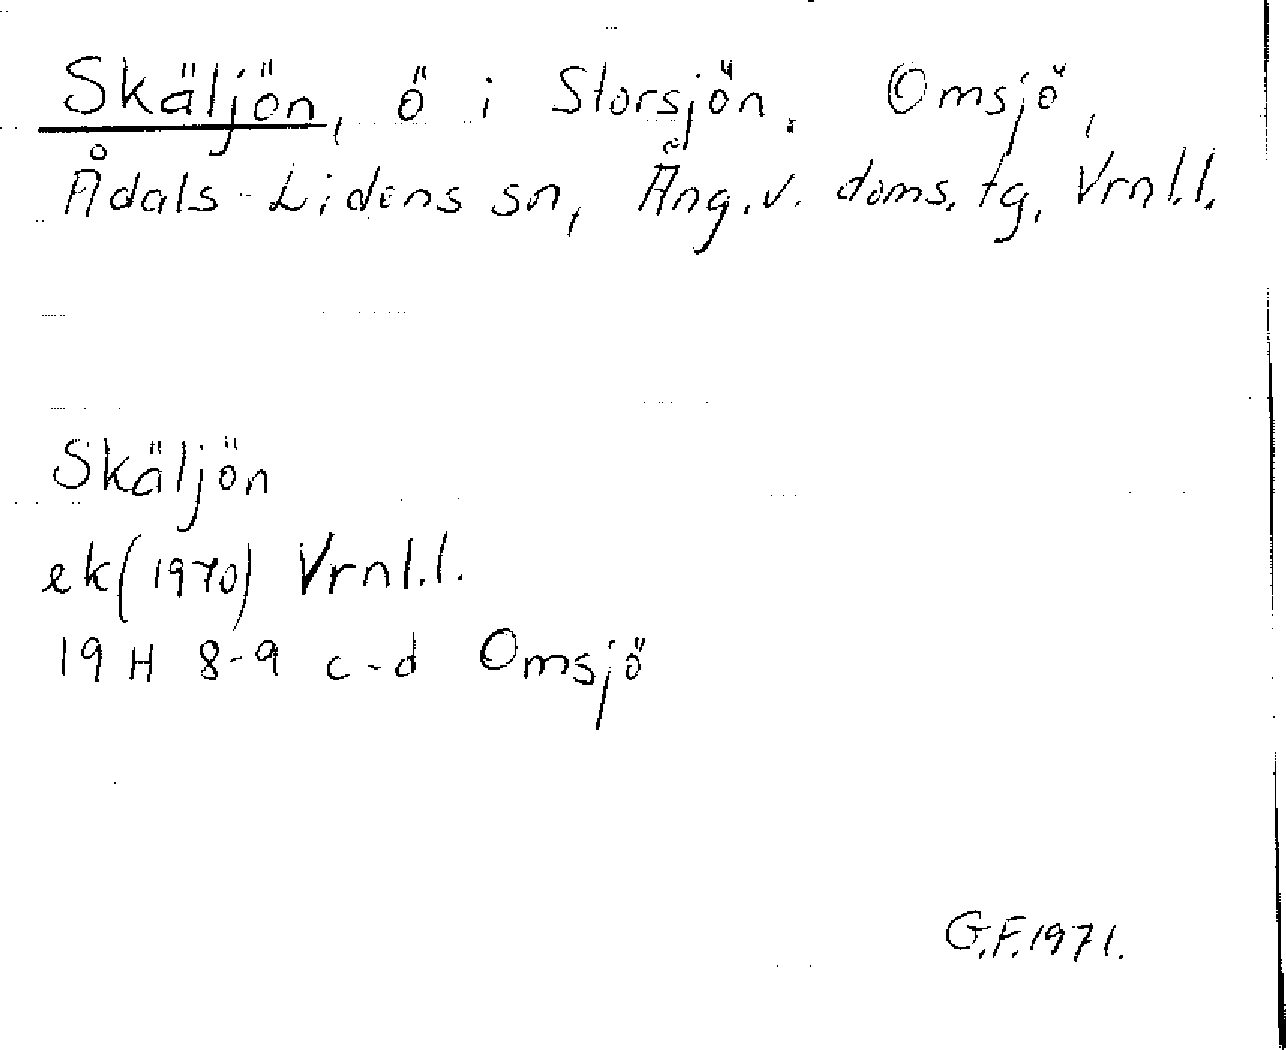 Skäljön, ö i Storsjön. Omsjö,
Ådals-Lidens sn, Ång.v. doms. tg, Vrnl.l.
Skäljön
ek(1970) Vrnl.l.
19 H 8-9 c-d Omsjö
G.F.1971.